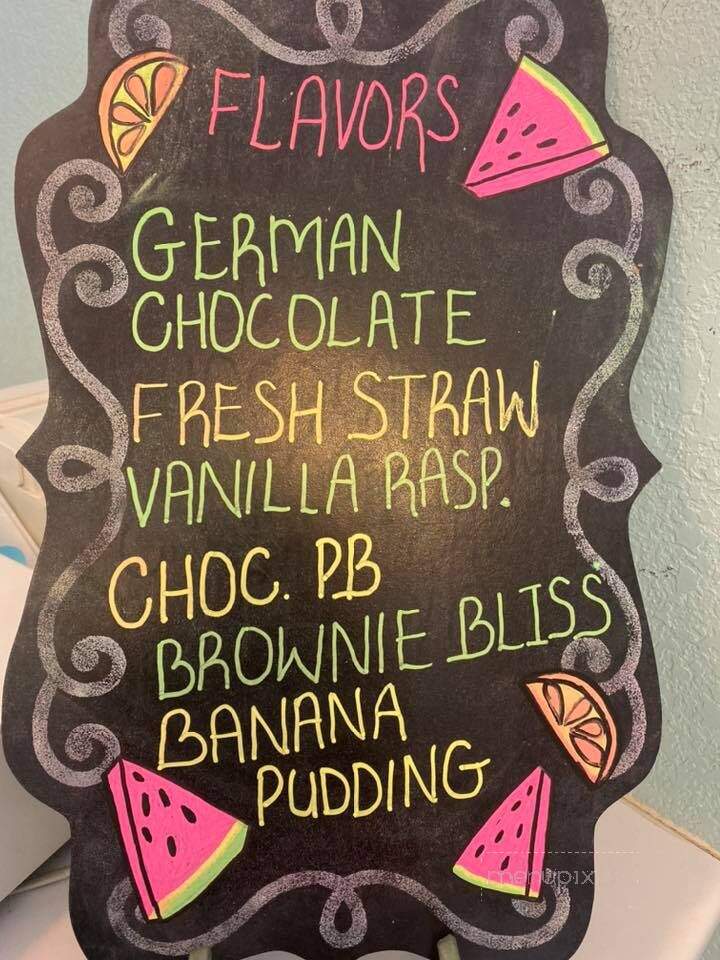 FLAVORS
GERMAN
CHOCOLATE
FRESH STRAW
VANILLA RASP.
CHOC. PB
BROWNIE BLISS
BANANA
PUDDING
menupix